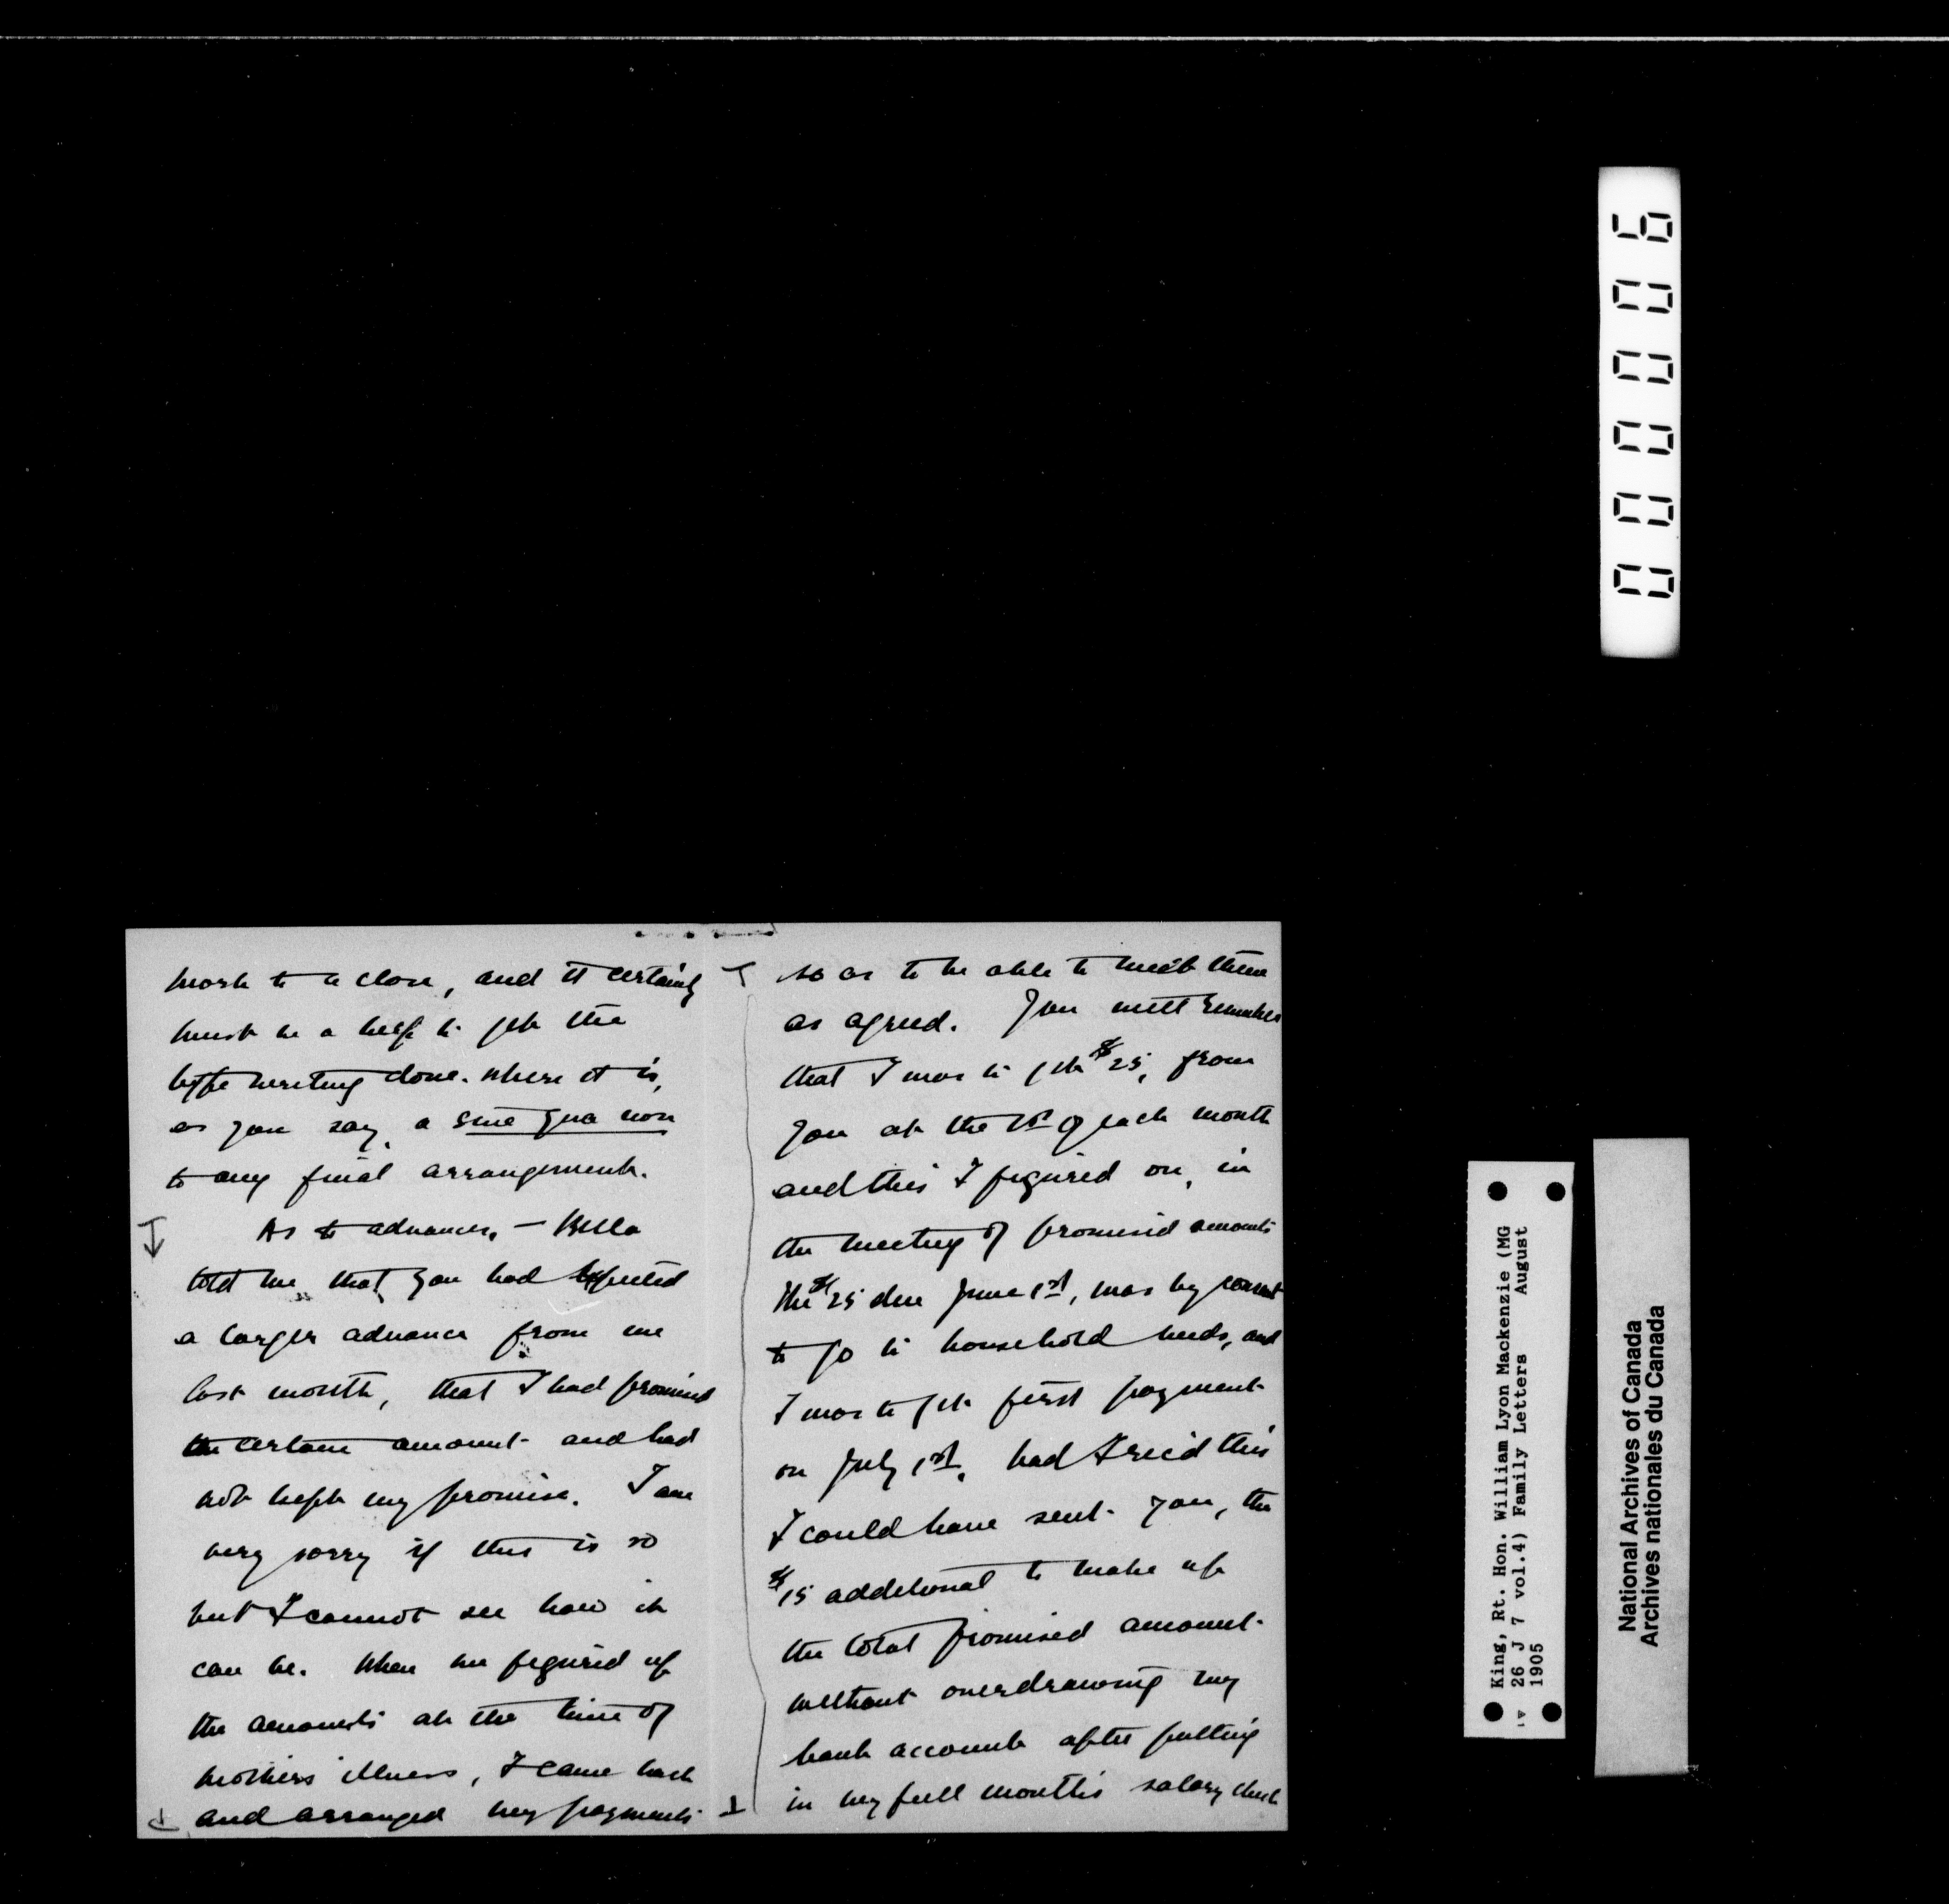 work to a close, and it certainly
must be a help to get the
type writing done. where it is,
as you say, a sine qua non
to any final arrangement.
As to advances, — Bella
told me that you had expected
a larger advance from me
last month, that I had promised
a certain amount and had
not kept my promise. I am
very sorry if this is so
but I cannot see how it
can be. When we figured up
the amounts at the time of
mother's illness, I came back
and arranged my payments
so as to be able to meet them
as agreed. You will remember
that I was to get $25, from
you at the 1st of each month
and this I figured on, in
the meeting of promised amounts
the $25 due June 1st, was by consent
to go to household needs, and
I was to get first payment
on July 1st. had I rec'd this
I could have sent you, the
$15 additional to make up
the total promised amount
without overdrawing my
bank account after putting
in my full month's salary check
000006
King, Rt. Hon. William Lyon Mackenzie (MG
26 J 7 vol.4) Family Letters August
1905
National Archives of Canada
Archives nationales du Canada